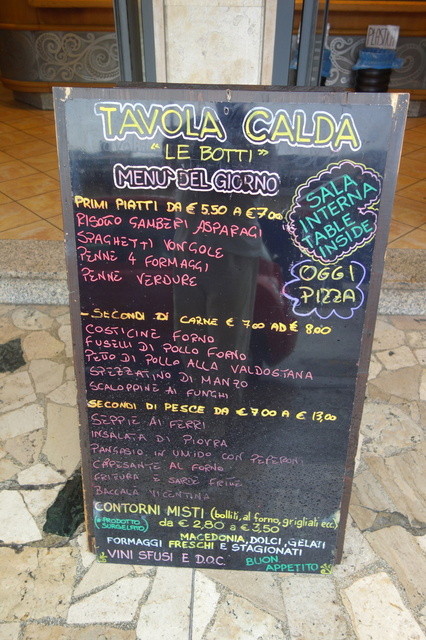 TAVOLA CALDA
"LE BOTTI"
MENU' DEL GIORNO
PRIMI PIATTI DA € 5.50 A € 7.00
RISOTTO GAMBERI ASPARAGI
SPAGHETTI VONGOLE
PENNE 4 FORMAGGI
PENNE VERDURE
SALA
INTERNA
TABLE
INSIDE
OGGI
PIZZA
-SECONDI DI CARNE € 7.00 AD € 8.00
COSTICINE FORNO
FUSELLI DI POLLO FORNO
PETTO DI POLLO ALLA VALDOSTANA
SPEZZATINO DI MANZO
SCALOPPINE AI FUNGHI
SECONDI DI PESCE DA € 7.00 A € 13,00
SEPPIE AI FERRI
INSALATA DI PIOVRA
PANGASIO IN UMIDO CON PEPERONI
CAPESANTE AL FORNO
FRITURA E SARDE FRITTE
BACCALA VICENTINA
CONTORNI MISTI (bolliti, al forno, grigliati ecc.)
*PRODOTTO SURGELATO da € 2,80 a € 3,50
MACEDONIA, DOLCI, GELATI
FORMAGGI FRESCHI E STAGIONATI
VINI SFUSI E D.O.C.
BUON
APPETITO